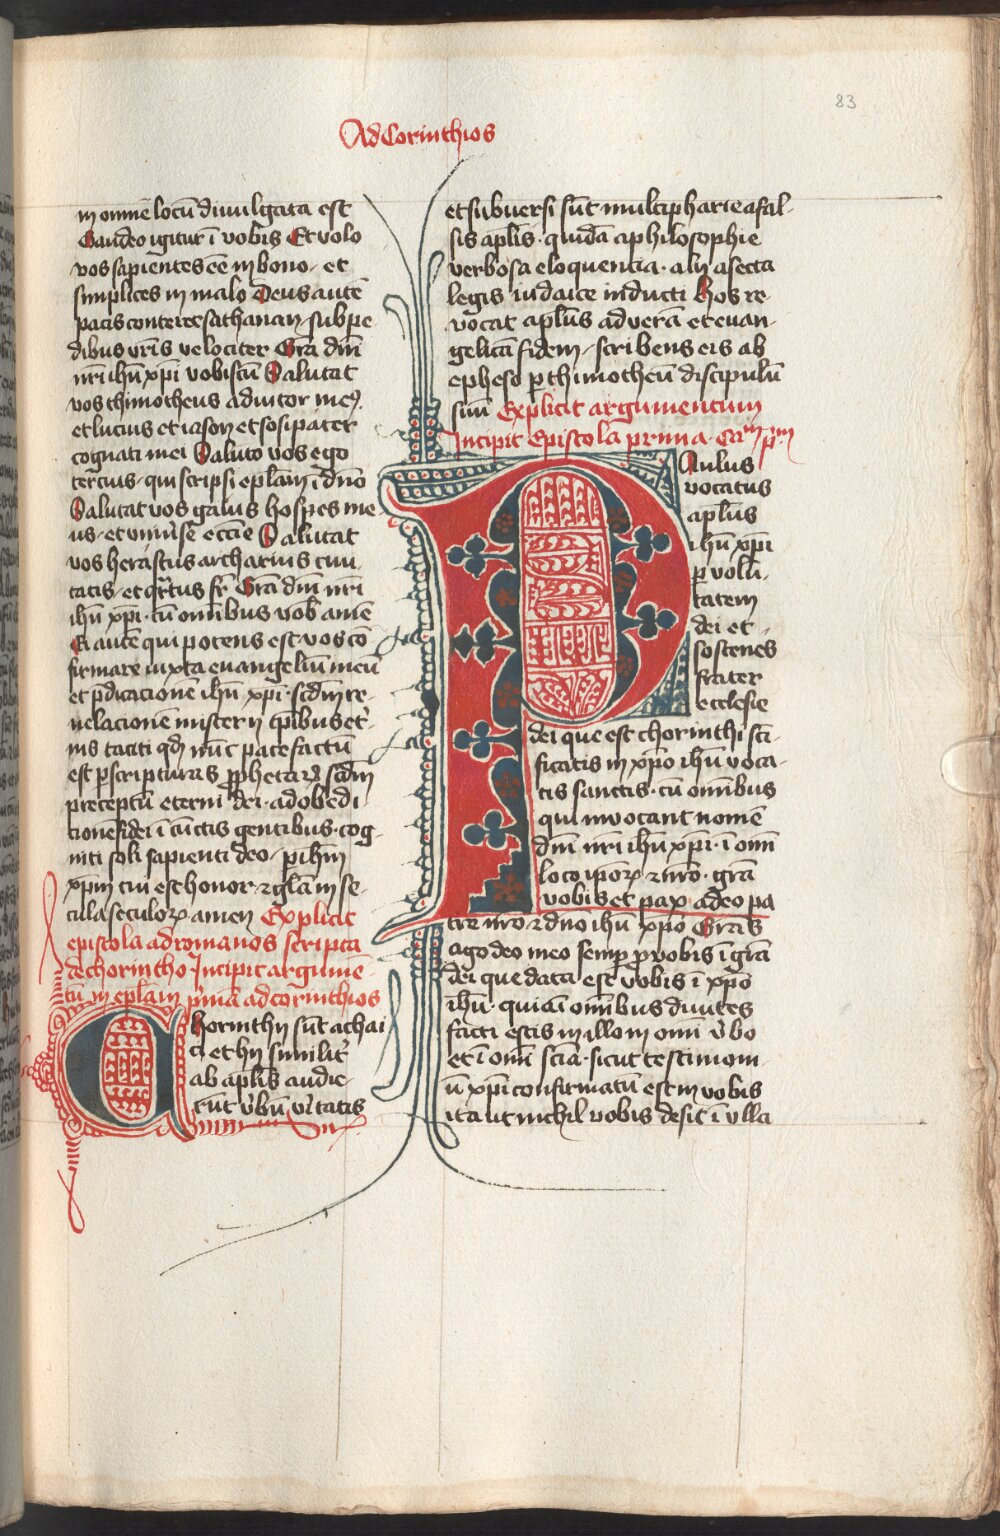 83
Ad Corinthios
in omnē locū divulgata est
Gaudeo igitur ī vobis Et volo
vos sapientes eē in bono et
simplices in malo Deus autē
pacis conteret sathanan sub pe
dibus vr̄is velociter Gr̄a dn̄i
nr̄i ihū xp̄i vobiscū Salutat
vos thimotheus adiutor meꝰ
et lucius et iason et sosipater
cognati mei Saluto vos ego
tercius qui scripsi epl̄am ī dn̄o
Salutat vos gaius hospes me
us et univ̄se eccīe Salutat
vos herastus archarius civi
tatis et qr̄tus fr̄ Gr̄a dn̄i nr̄i
ihū xp̄i cū om̄ibus vob̄ amē
Ei autē qui potens est vos cō
firmare iuxta evangeliū meū
et p̄dicacionē ihū xp̄i scd̄m re
velacionē misterii tp̄ibus et̄
nis taciti qd̄ nūc patefactū
est ꝑ scripturas ꝓphetaꝝ scd̄m
preceptū eterni dei ad obedi
cionē fidei ī cūctis gentibus cog
niti soli sapienti deo p̄ ihm̄
xp̄m cui est honor ⁊ glīa in se
cula seculoꝝ amen Explicit
epistola ad romanos scripta
de chorintho Incipit argumē
tū in epl̄am p̄mā ad corinthios
Chorinthii sūt achai
ci et hii similit̄
ab apl̄is audie
rūt v̄bū v̄itatis
et subversi sūt multipharie a fal
sis apl̄is quidā a philosophie
verbosa eloquencia alii a secta
legis iudaice inducti hos re
vocat apl̄us ad verā et evan
gelicā fidem scribens eis ab
epheso ꝑ thimotheū discipulū
suū Explicit argumentum
Incipit Epistola prima Caᵐ pᵐ
Paulus
vocatus
apl̄us
ihū xp̄i
ꝑ volū
tatem
dei et
sostenes
frater
ecclesie
dei que est chorinthi scī
ficatis in xp̄o ihū voca
tis sanctis cū om̄ibus
qui invocant nomē
dn̄i nr̄i ihū xp̄i ī om̄i
loco ip̄oꝝ ⁊ nr̄o gr̄a
vobis et pax a deo pa
tre nr̄o ⁊ dn̄o ihū xp̄o Gr̄as
ago deo meo semꝑ ꝓ vobis ī gr̄a
dei que data est vobis ī xp̄o
ihū quia ī om̄ibus divites
facti estis in illo in om̄i v̄bo
et ī om̄i scīa sicut testimoni
ū xp̄i confirmatū est in vobis
ita ut nichil vobis desit ī ulla